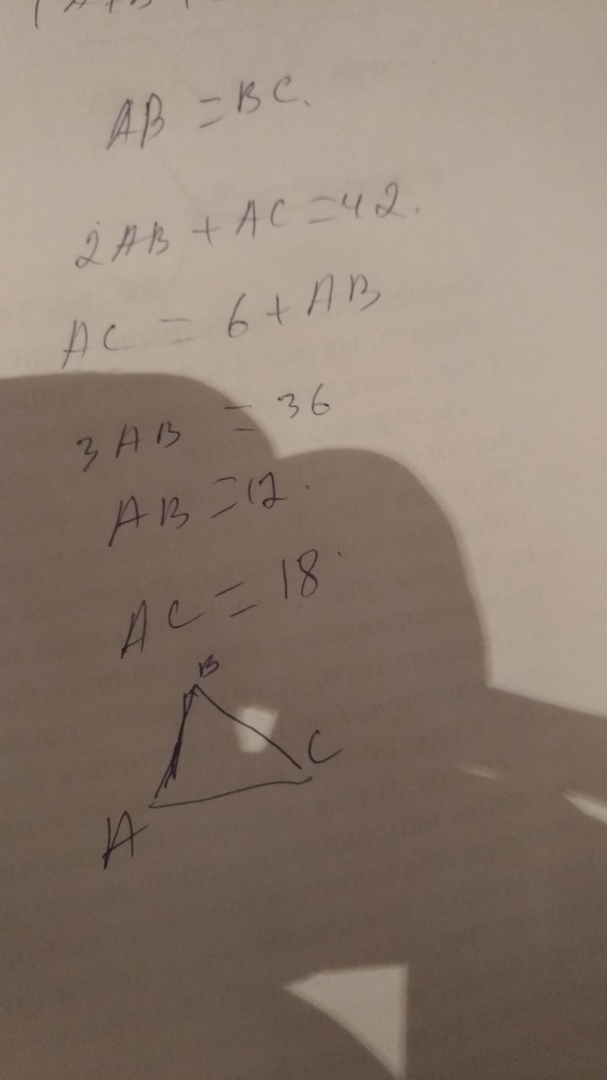 AB = BC.
2AB + AC = 42.
AC = 6 + AB
3AB = 36
AB = 12.
AC = 18.
B
C
A